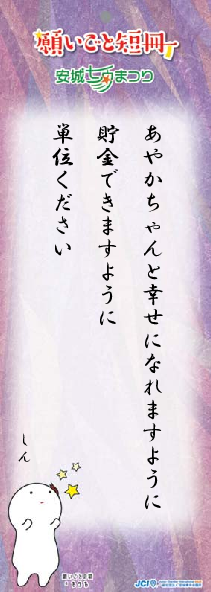 願いごと短冊
安城七夕まつり
あやかちゃんと幸せになれますように
貯金できますように
単位ください
しん
願いごと短冊
JCI